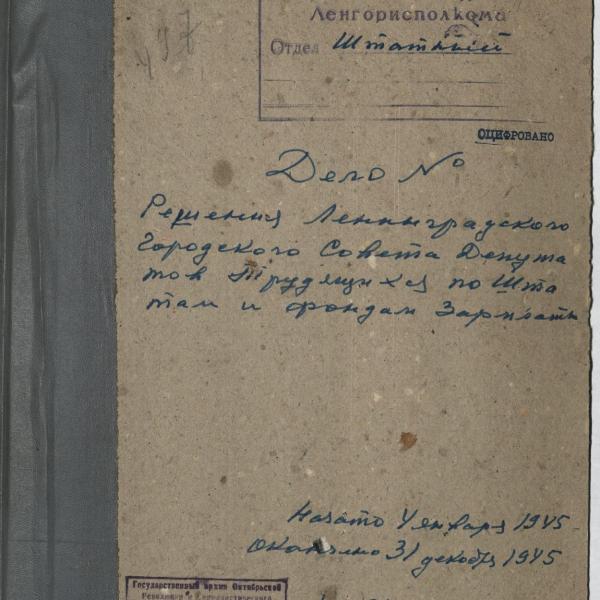 497
Ленгорисполкома
Отдел Штатный
ОЦИФРОВАНО
Дело №
Решения Ленинградского
Городского Совета Депута
тов Трудящихся по Шта
там и фондам Зарплаты
Начато 4 января 1945
Окончено 31 декабря 1945
Государственный Архив Октябрьской
Революции и Социалистического